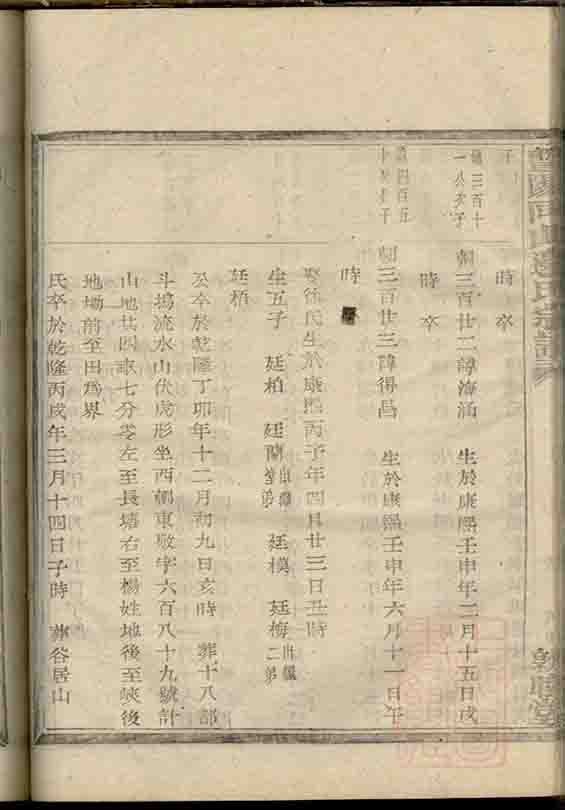 時 卒
朝三百廿二諱海涵 生於康熙壬申年二月十五日戌
時 卒
朝三百廿三諱得昌 生於康熙壬申年六月十一日午
時
娶徐氏生於康熙丙子年四月廿三日丑時
生五子 廷柏 廷蘭 廷模 廷梅
廷栢
公卒於乾隆丁卯年十二月初九日亥時 葬十八都
斗塢流水山伏虎形坐西朝東敬字六百八十九號計
山地廿四畝七分零左至長塘右至楊姓地後至峽後
地塝前至田為界
氏卒於乾隆丙戌年三月十四日子時 葬谷居山